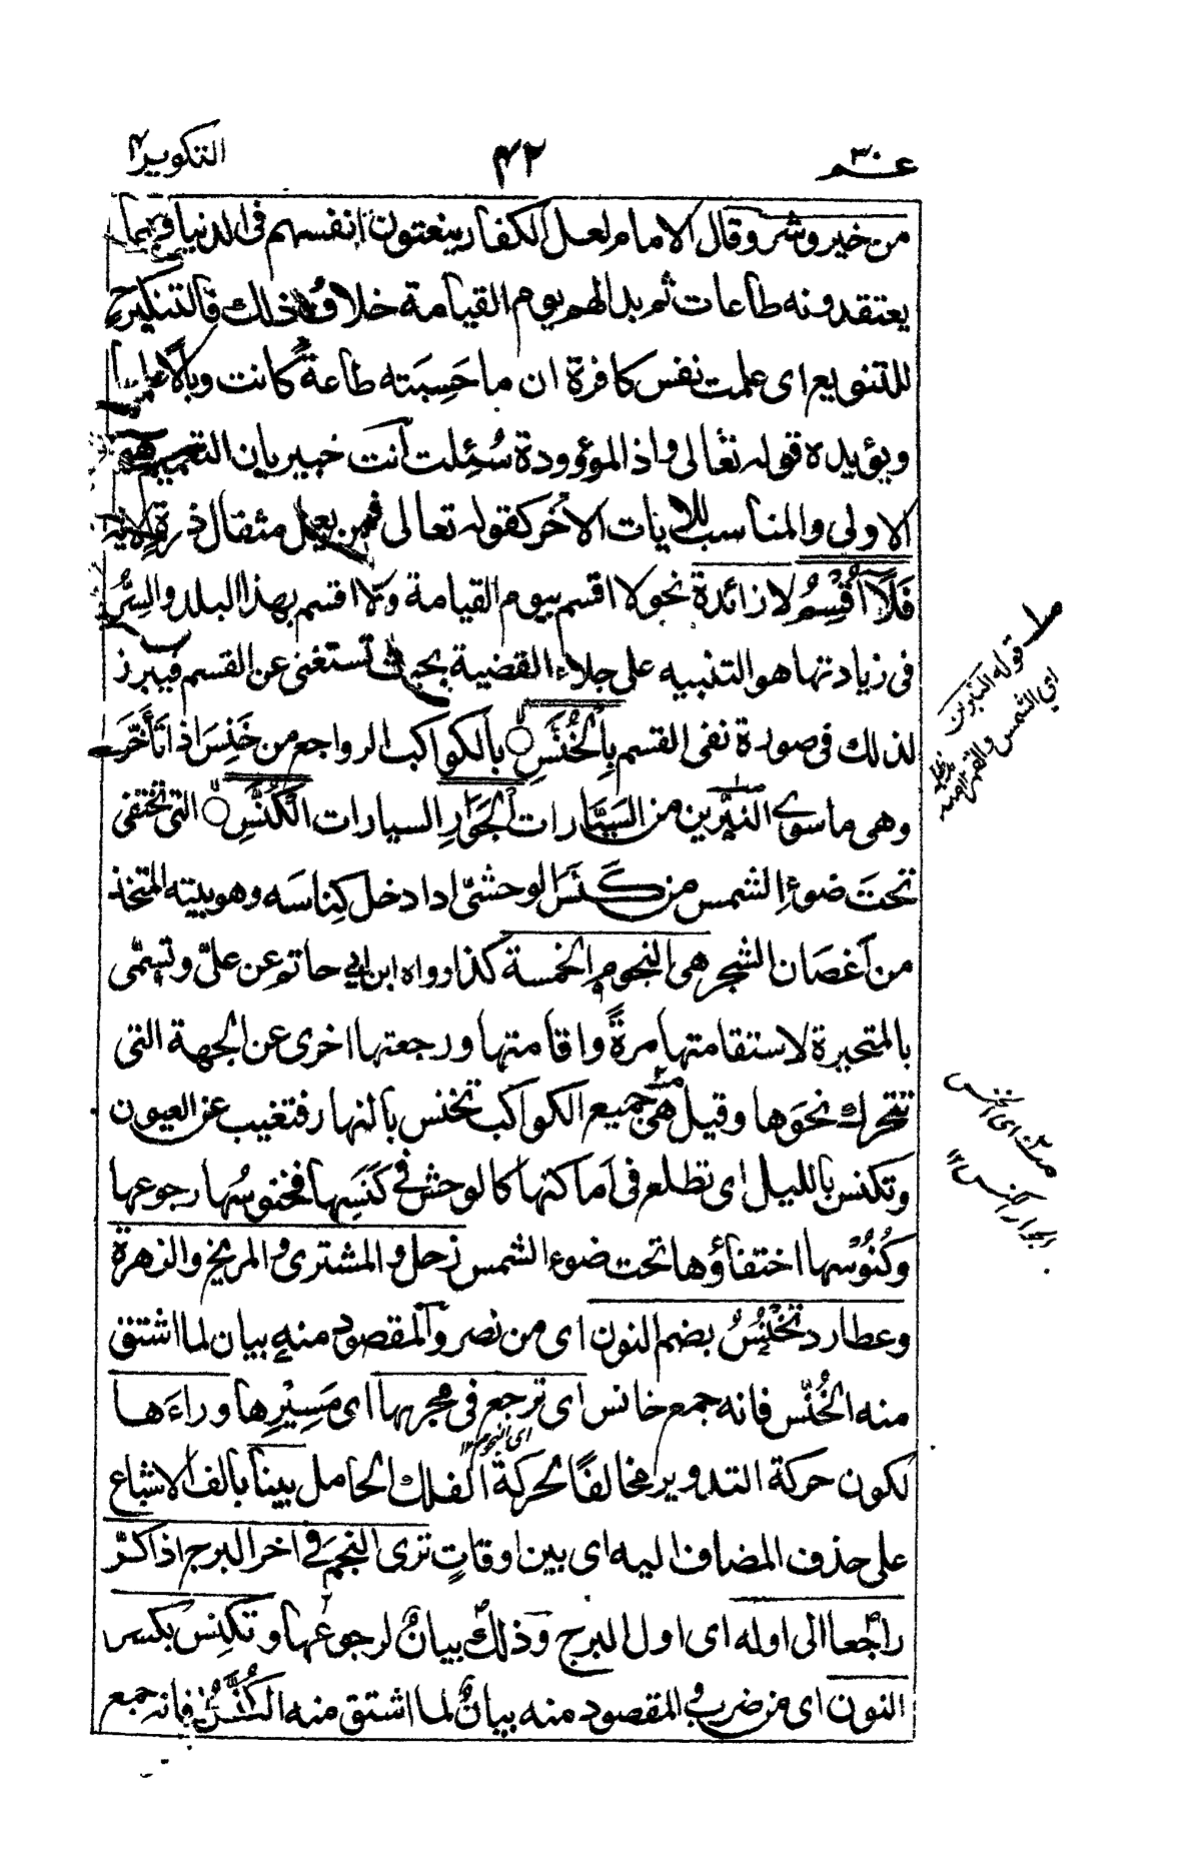 عم ٣٠
٤٢
التكوير
من خير وشر وقال الامام لعل الكفار يتعبون انفسهم فى الدنيا فيما
يعتقدونه طاعات ثم بدا لهم يوم القيامة خلاف ذلك فالتنكير
للتنويع اى علمت نفس كافرة ان ما حَسِبَته طاعةً كانت وبالًا
ويؤيده قوله تعالى واذا الموؤودة سُئِلت أنت خبير بان التعميم هو
الاولى والمناسب للايات الأخر كقوله تعالى فمن يعمل مثقال ذرة الاية
فَلَآ اُقْسِمُ لا زائدة نحو لا اقسم بيوم القيامة ولا اقسم بهذا البلد والسِّر
فى زيادتها هو التنبيه على جلاء القضية بحيث تستغنى عن القسم فيبرز
لذلك فى صورة نفى القسم بِالْخُنَّسِ بالكواكب الرواجع من خَنِسَ اذا تَأَخَّرَ
وهى ما سوى النيّرين من السَيَّارات الجَوَارِ السيارات الْكُنَّسِ التى تختفى
تحتَ ضوءِ الشمس من كَنَسَ الوحشىّ اذا دخل كِناسَه وهو بيته المتخذ
من أغصَان الشجر هى النجوم الخمسة كذا رواه ابن ابي حاتم عن علىّ وتسمّى
بالمتحيرة لاستقامتها مرةً واقامتها ورجعتها اخرى عن الجهة التى
تتحرك نحوَها وقيل هى جميع الكواكب تخنس بالنهار فتغيب عن العيون
وتكنس بالليل اى تطلع فى أماكنها كالوحش فى كَنَسِها فخنوسُها رجوعها
وكُنُوْسُها اختفاؤها تحت ضوء الشمس زحل والمشترى والمريخ والزهرة
وعطارد تَخْنُسُ بضم النون اى من نصر والمقصود منه بيان لما اشتق
منه الخُنَّس فانه جمع خانس اى ترجع فى مجريها اى مَسِيْرِها وراءَها
اى النجوم ١٢
لكون حركة التدوير مخالفًا لحركة الفلك الحامل بينا بالف الاشباع
على حذف المضاف اليه اى بين اوقاتٍ ترى النجمَ فى اخر البرج اذا كرّ
راجعا الى اوله اى اول البرج وذلك بيانٌ لرجوعها وتكنِس بكسر
النون اى من ضرب والمقصود منه بيانٌ لما اشتق منه الكُنَّس فانه جمع
قوله النيّرين
اي الشمس والقمر
اى الخنس
الجوار الكنس ١٢